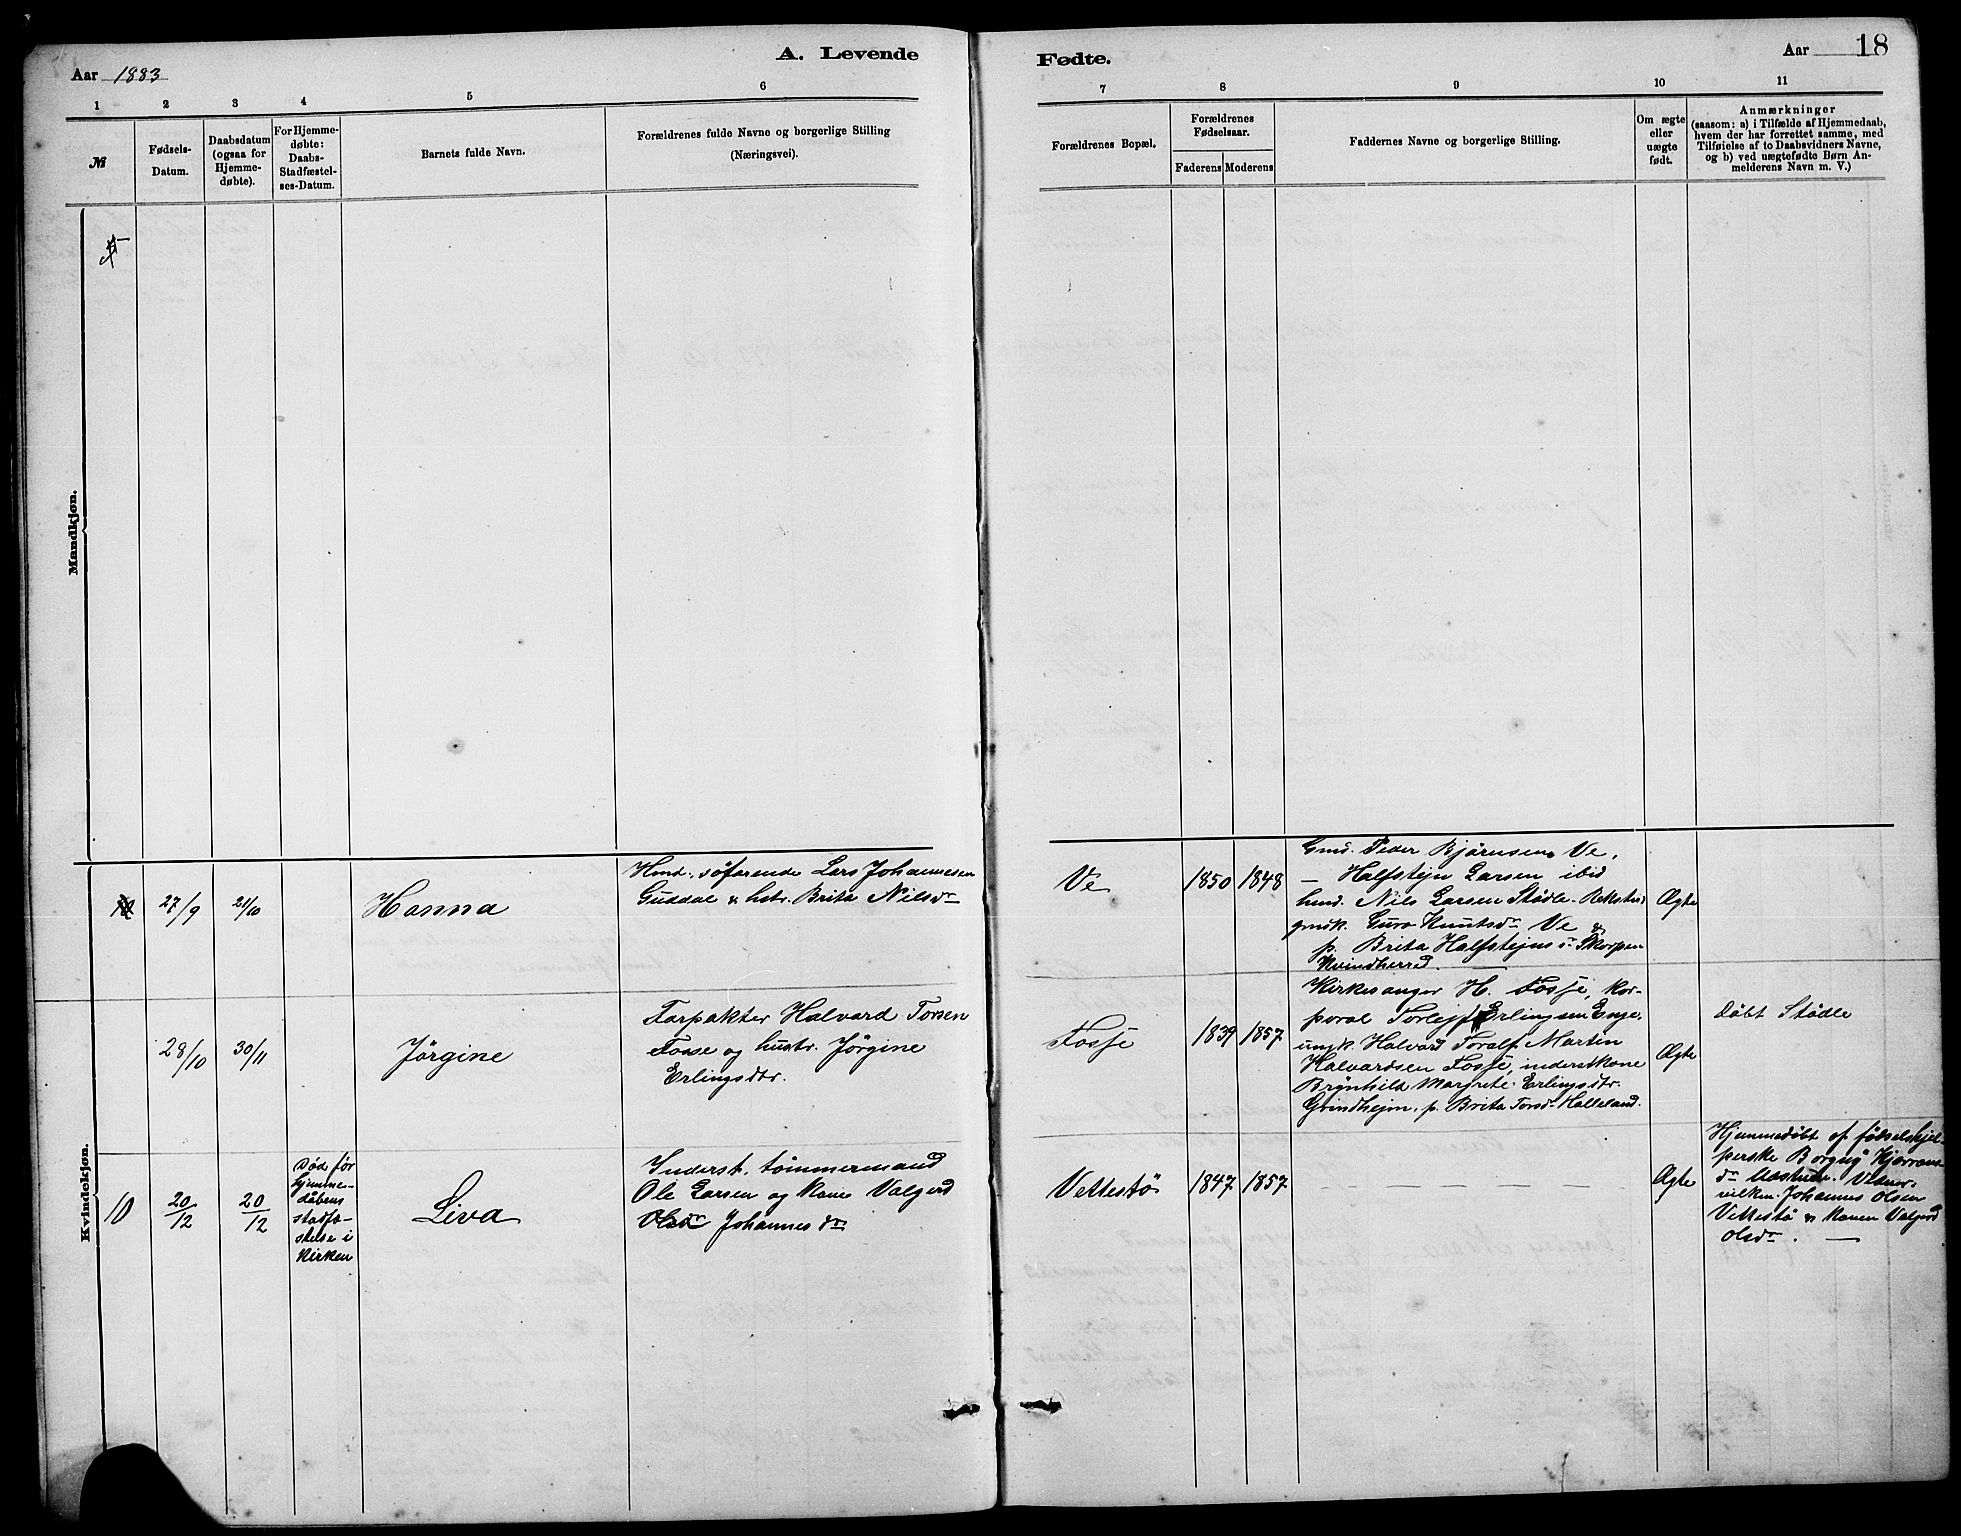 A. Levende
Fødte.
Aar 1883
Aar 18
1 2 3 4 5 6
7 8 9 10 11
№
Fødsels-
Datum.
Daabsdatum
(ogsaa for
Hjemme-
døbte).
For Hjemme-
døbte:
Daabs-
Stadfæstel-
ses-Datum.
Barnets fulde Navn.
Forældrenes fulde Navne og borgerlige Stilling
(Næringsvei).
Forældrenes Bopæl.
Forældrenes
Fødselsaar.
Faderens Moderens
Faddernes Navne og borgerlige Stilling.
Om ægte
eller
uægte
født.
Anmærkninger
(saasom: a) i Tilfælde af Hjemmedaab,
hvem der har forrettet samme, med
Tilføielse af to Daabsvidners Navne,
og b) ved uægtefødte Børn An-
melderens Navn m. V.)
Mandkjøn.
Kvindekjøn.
27/9
21/10
Hanna
Hmd. søfarende Lars Johannesen
Guddal & hstr. Brita Nilsdr
Ve
1850
1848
Gmd. Peder Bjørnsen Ve,
— Halfstejn Larsen ibid
hmd. Nils Larsen Stødle
gmdk. Guro Knutsdr Ve &
p. Brita Halfstejnsdr Skorpen
Kvindherred.
Ægte
28/10
30/11
Jörgine
Forpakter Halvard Torsen
Fosse og hustr. Jörgine
Erlingsdtr.
Fosse
1839
1857
Kirkesanger H. Fosse, Kor-
poral Torlejf Erlingsen Enge,
ungk. Halvard Toralf Martin
Halvardsen Fosse, inderstkone
Brynhild Margrete Erlingsdtr.
Grindhejm, p. Brita Torsdr Halleland.
Ægte
døbt Stødle
10
20/12
20/12
Død før
hjemme-
dåbens
stadfæ-
stelse i
Kirken
Liva
Inderst. tömmermand
Ole Larsen og Kone Valgerd
Olsdr Johannesdr
Vettestö
1847
1857
— — — — — —
Ægte
Hjemmedöbt af fødselshjel-
perske Borgny
Johannes Olsen
Vettestö & Konen Valgerd
Olsdr. —